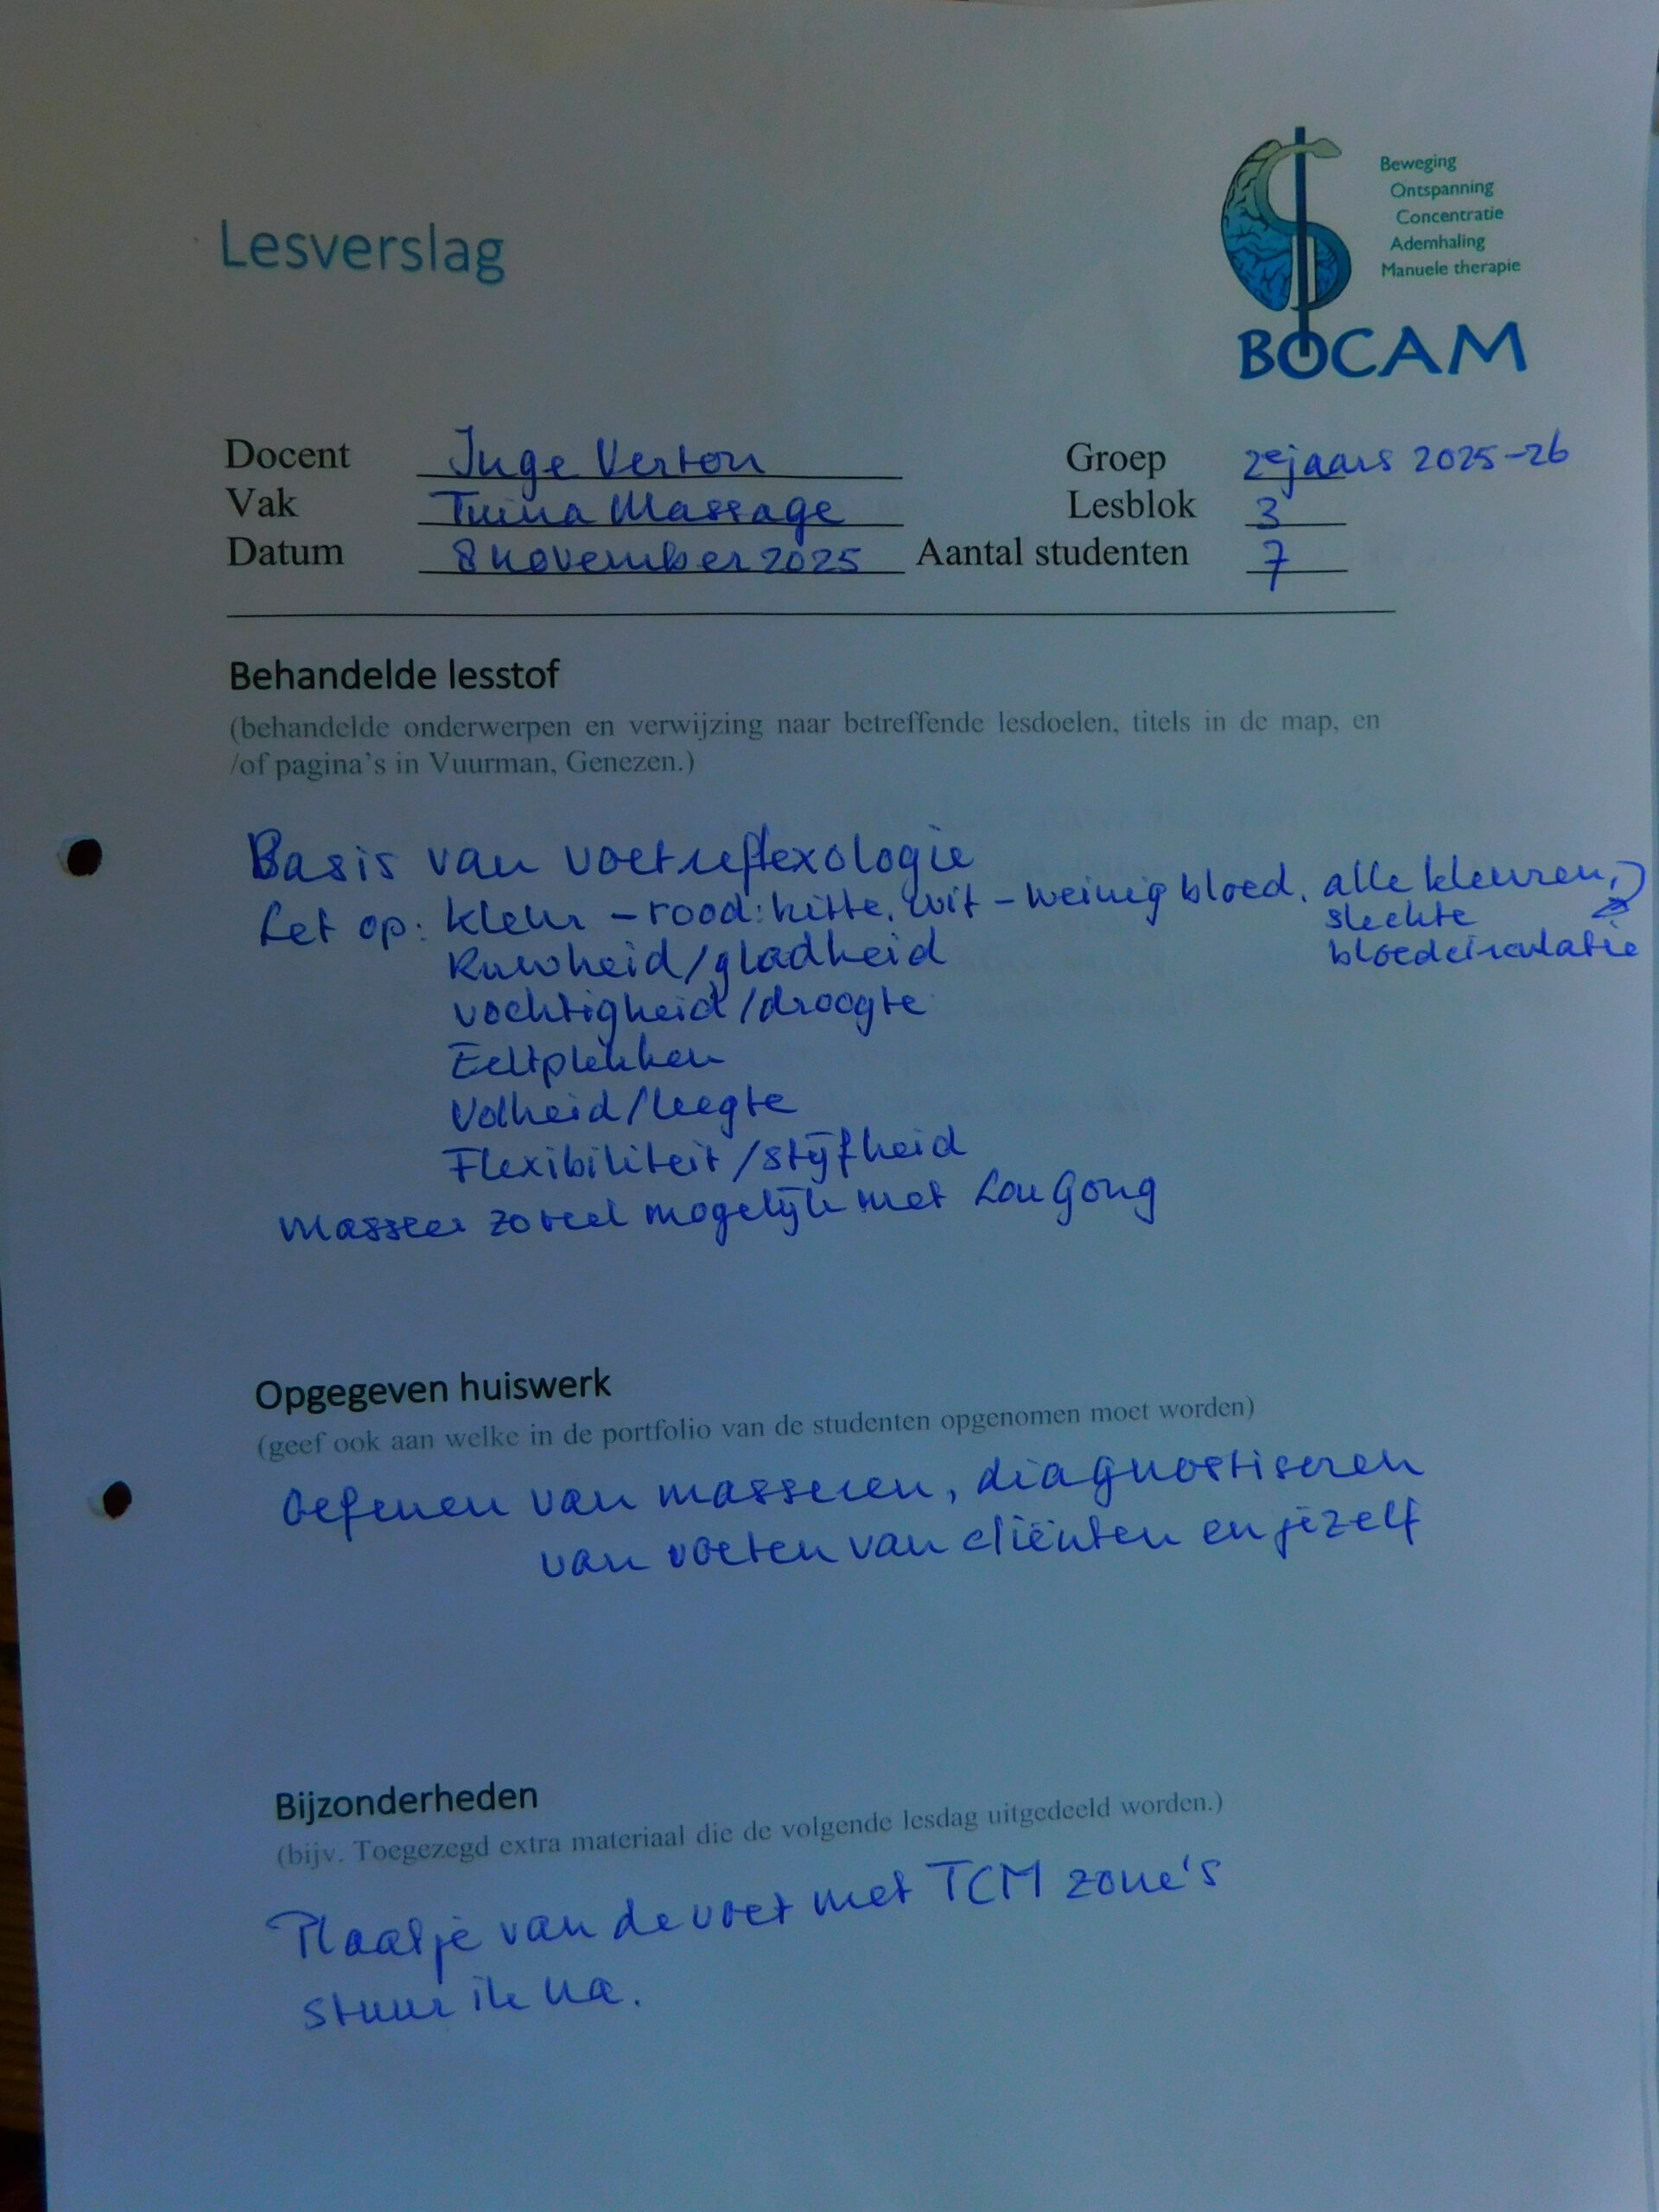 Lesverslag
Beweging
Ontspanning
Concentratie
Ademhaling
Manuele therapie
BOCAM
Docent Inge Verton Groep 2e jaars 2025-26
Vak Tuina Massage Lesblok 3
Datum 8 november 2025 Aantal studenten 7
Behandelde lesstof
(behandelde onderwerpen en verwijzing naar betreffende lesdoelen, titels in de map, en
/of pagina's in Vuurman, Genezen.)
Basis van voetreflexologie
Let op: kleur – rood: hitte, wit – weinig bloed. alle kleuren,
slechte
bloedcirculatie
Ruwheid/gladheid
vochtigheid/droogte
Eeltplekken
Volheid/leegte
Flexibiliteit/stijfheid
Masseer zoveel mogelijk met Lou Gong
Opgegeven huiswerk
(geef ook aan welke in de portfolio van de studenten opgenomen moet worden)
Oefenen van masseren, diagnostiseren
van voeten van cliënten en jezelf
Bijzonderheden
(bijv. Toegezegd extra materiaal die de volgende lesdag uitgedeeld worden.)
Plaatje van de voet met TCM zone's
stuur ik na.